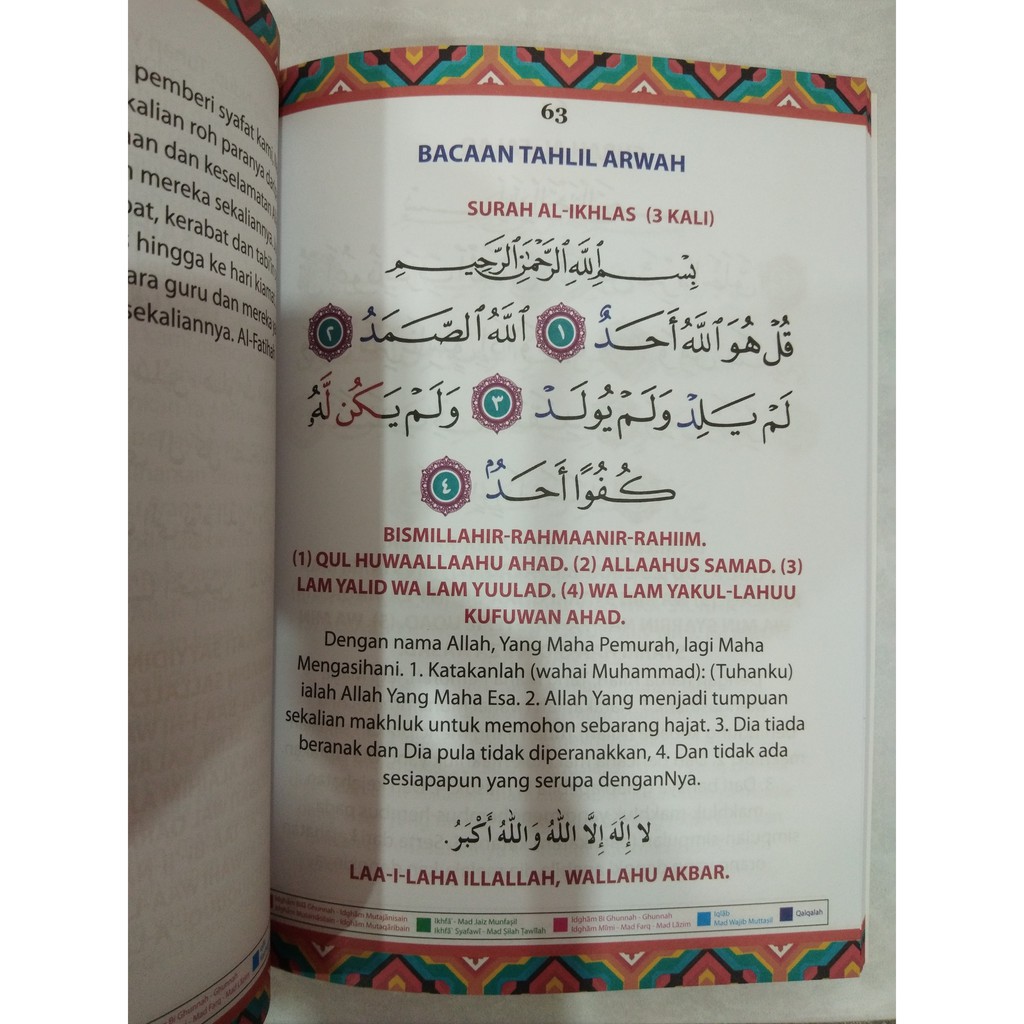 pemberi syafat kami
kalian roh paranya
dan keselamatan
mereka sekaliannya
kerabat dan
hingga ke hari kiamat
guru dan mereka
sekaliannya. Al-Fatihah
63
BACAAN TAHLIL ARWAH
SURAH AL-IKHLAS (3 KALI)
بِسْمِ ٱللَّهِ ٱلرَّحْمَٰنِ ٱلرَّحِيمِ
قُلْ هُوَ ٱللَّهُ أَحَدٌ ١ ٱللَّهُ ٱلصَّمَدُ ٢
لَمْ يَلِدْ وَلَمْ يُولَدْ ٣ وَلَمْ يَكُن لَّهُۥ
كُفُوًا أَحَدُۢ ٤
BISMILLAHIR-RAHMAANIR-RAHIIM.
(1) QUL HUWAALLAAHU AHAD. (2) ALLAAHUS SAMAD. (3)
LAM YALID WA LAM YUULAD. (4) WA LAM YAKUL-LAHUU
KUFUWAN AHAD.
Dengan nama Allah, Yang Maha Pemurah, lagi Maha
Mengasihani. 1. Katakanlah (wahai Muhammad): (Tuhanku)
ialah Allah Yang Maha Esa. 2. Allah Yang menjadi tumpuan
sekalian makhluk untuk memohon sebarang hajat. 3. Dia tiada
beranak dan Dia pula tidak diperanakkan, 4. Dan tidak ada
sesiapapun yang serupa denganNya.
لاَ إِلَهَ إِلَّا اللهُ وَاللهُ أَكْبَرُ.
LAA-I-LAHA ILLALLAH, WALLAHU AKBAR.
Idghām Mutajānisain
Idghām Mutaqāribain
Ikhfā' - Mad Jaiz Munfaṣil
Ikhfā' Syafawī - Mad Ṣilah Ṭawīlah
Idghām Bi Ghunnah - Ghunnah
Idghām Mīmi - Mad Farq - Mad Lāzim
Iqlāb
Mad Wajib Muttaṣil
Qalqalah
Bi Ghunnah - Ghunnah
Mad Farq - Mad Lāzim